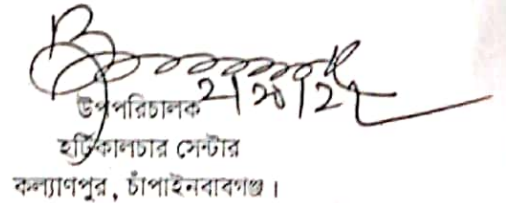 উপপরিচালক
হর্টিকালচার সেন্টার
কল্যাণপুর, চাঁপাইনবাবগঞ্জ।